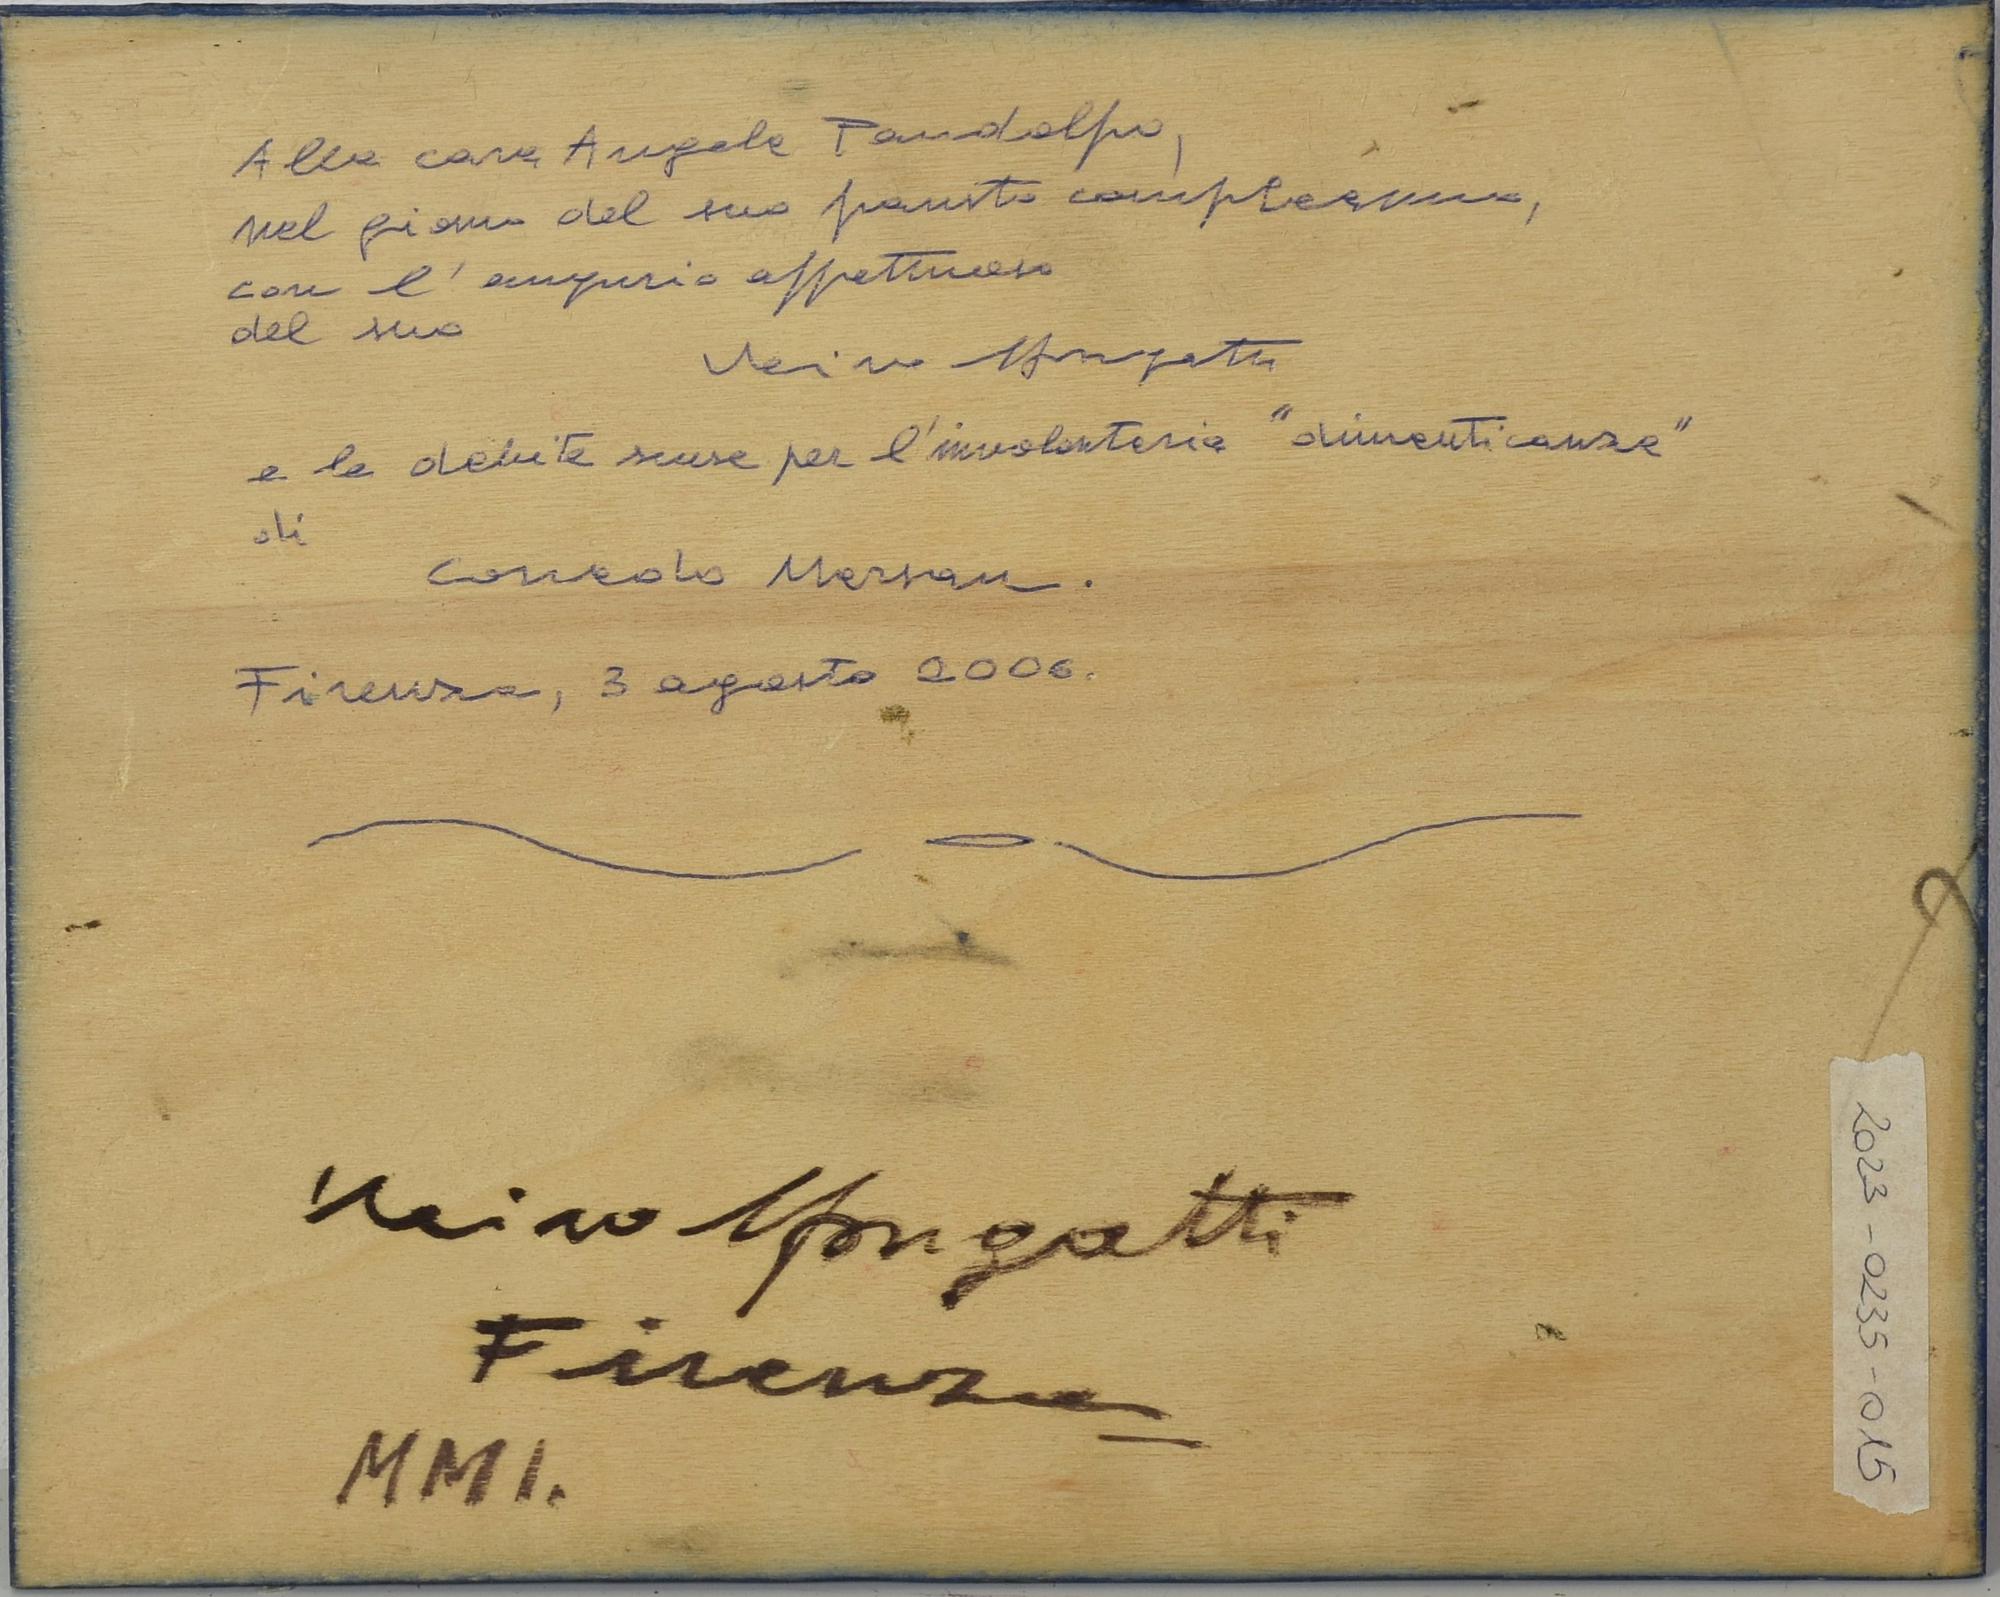 Alla cara Angela Pandolfo,
nel giorno del suo fausto compleanno,
con l'augurio affettuoso
del suo
Veivo Mongatti
e le debite scuse per l'involontaria "dimenticanza"
di
Corrado Marsan.
Firenze, 3 agosto 2006.
Mongatti
Firenze
MMI.
2023-0235-015